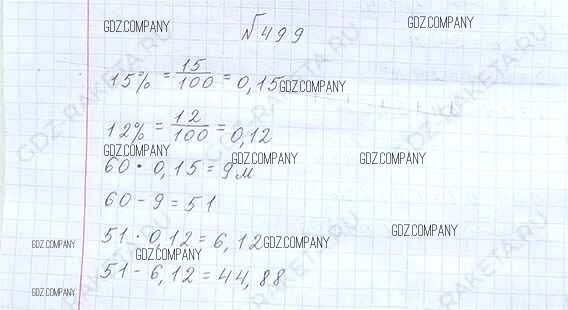 №499
GDZ.COMPANY GDZ.COMPANY
15% = 15/100 = 0,15 GDZ.COMPANY
12% = 12/100 = 0,12
GDZ.COMPANY GDZ.COMPANY GDZ.COMPANY
60 · 0,15 = 9 м
60 - 9 = 51
GDZ.COMPANY
51 · 0,12 = 6,12 GDZ.COMPANY
GDZ.COMPANY GDZ.COMPANY
51 - 6,12 = 44,88
GDZ.COMPANY
GDZ-RAKETA.RU
GDZ-RAKETA.RU
GDZ-RAKETA.RU